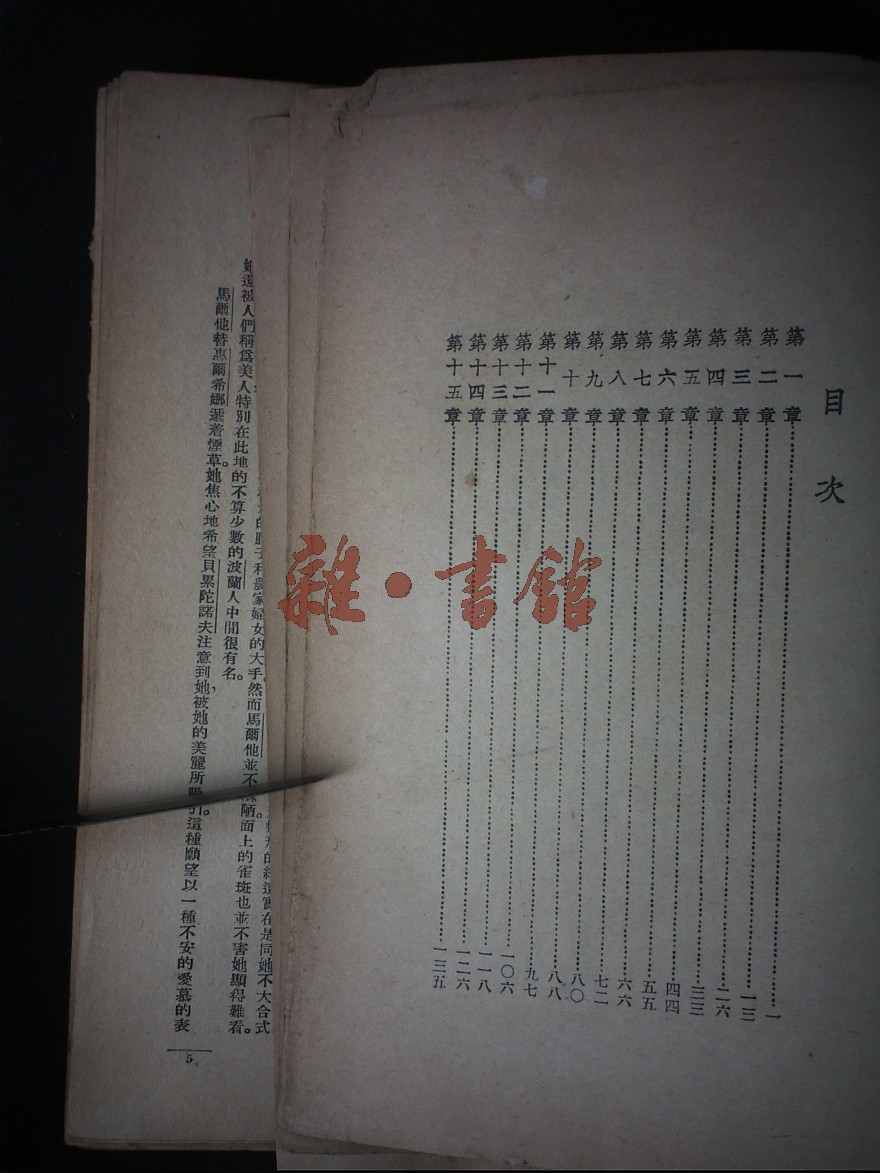 目次
第一章……一
第二章……一三
第三章……二六
第四章……三三
第五章……四四
第六章……五五
第七章……六六
第八章……七二
第九章……八〇
第十章……八八
第十一章……九七
第十二章……一〇六
第十三章……一一八
第十四章……一二六
第十五章……一三五
雜·書館
子和農家婦女的大手。然而馬爾他並不
陋面上的雀斑也並不害她顯得難看。
實在是同她不大合式
她還被人們稱爲美人特別在此地的不算少數的波蘭人中間很有名。
馬爾他替惠爾希娜遞着煙草。她焦心地希望貝累陀諾夫注意到她,被她的美麗所吸引。這種願望以一種不安的愛慕的表
5